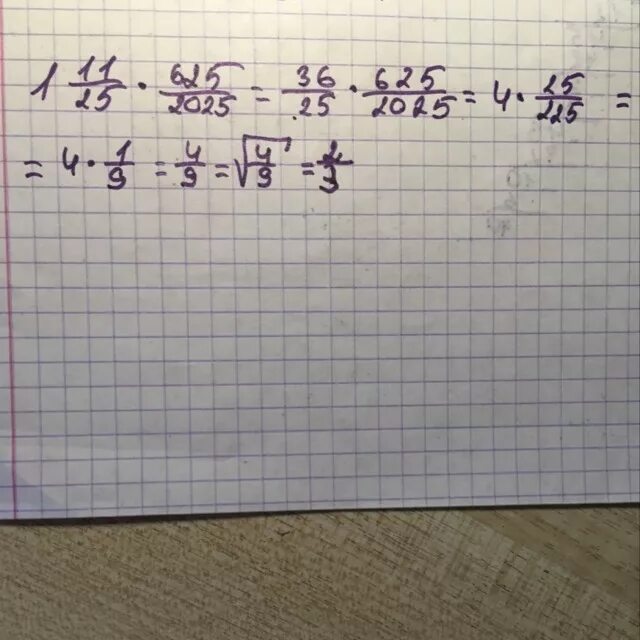 1 11/25 · 625/2025 = 36/25 · 625/2025 = 4 · 25/225 =
= 4 · 1/9 = 4/9 = √4/9 = 2/3